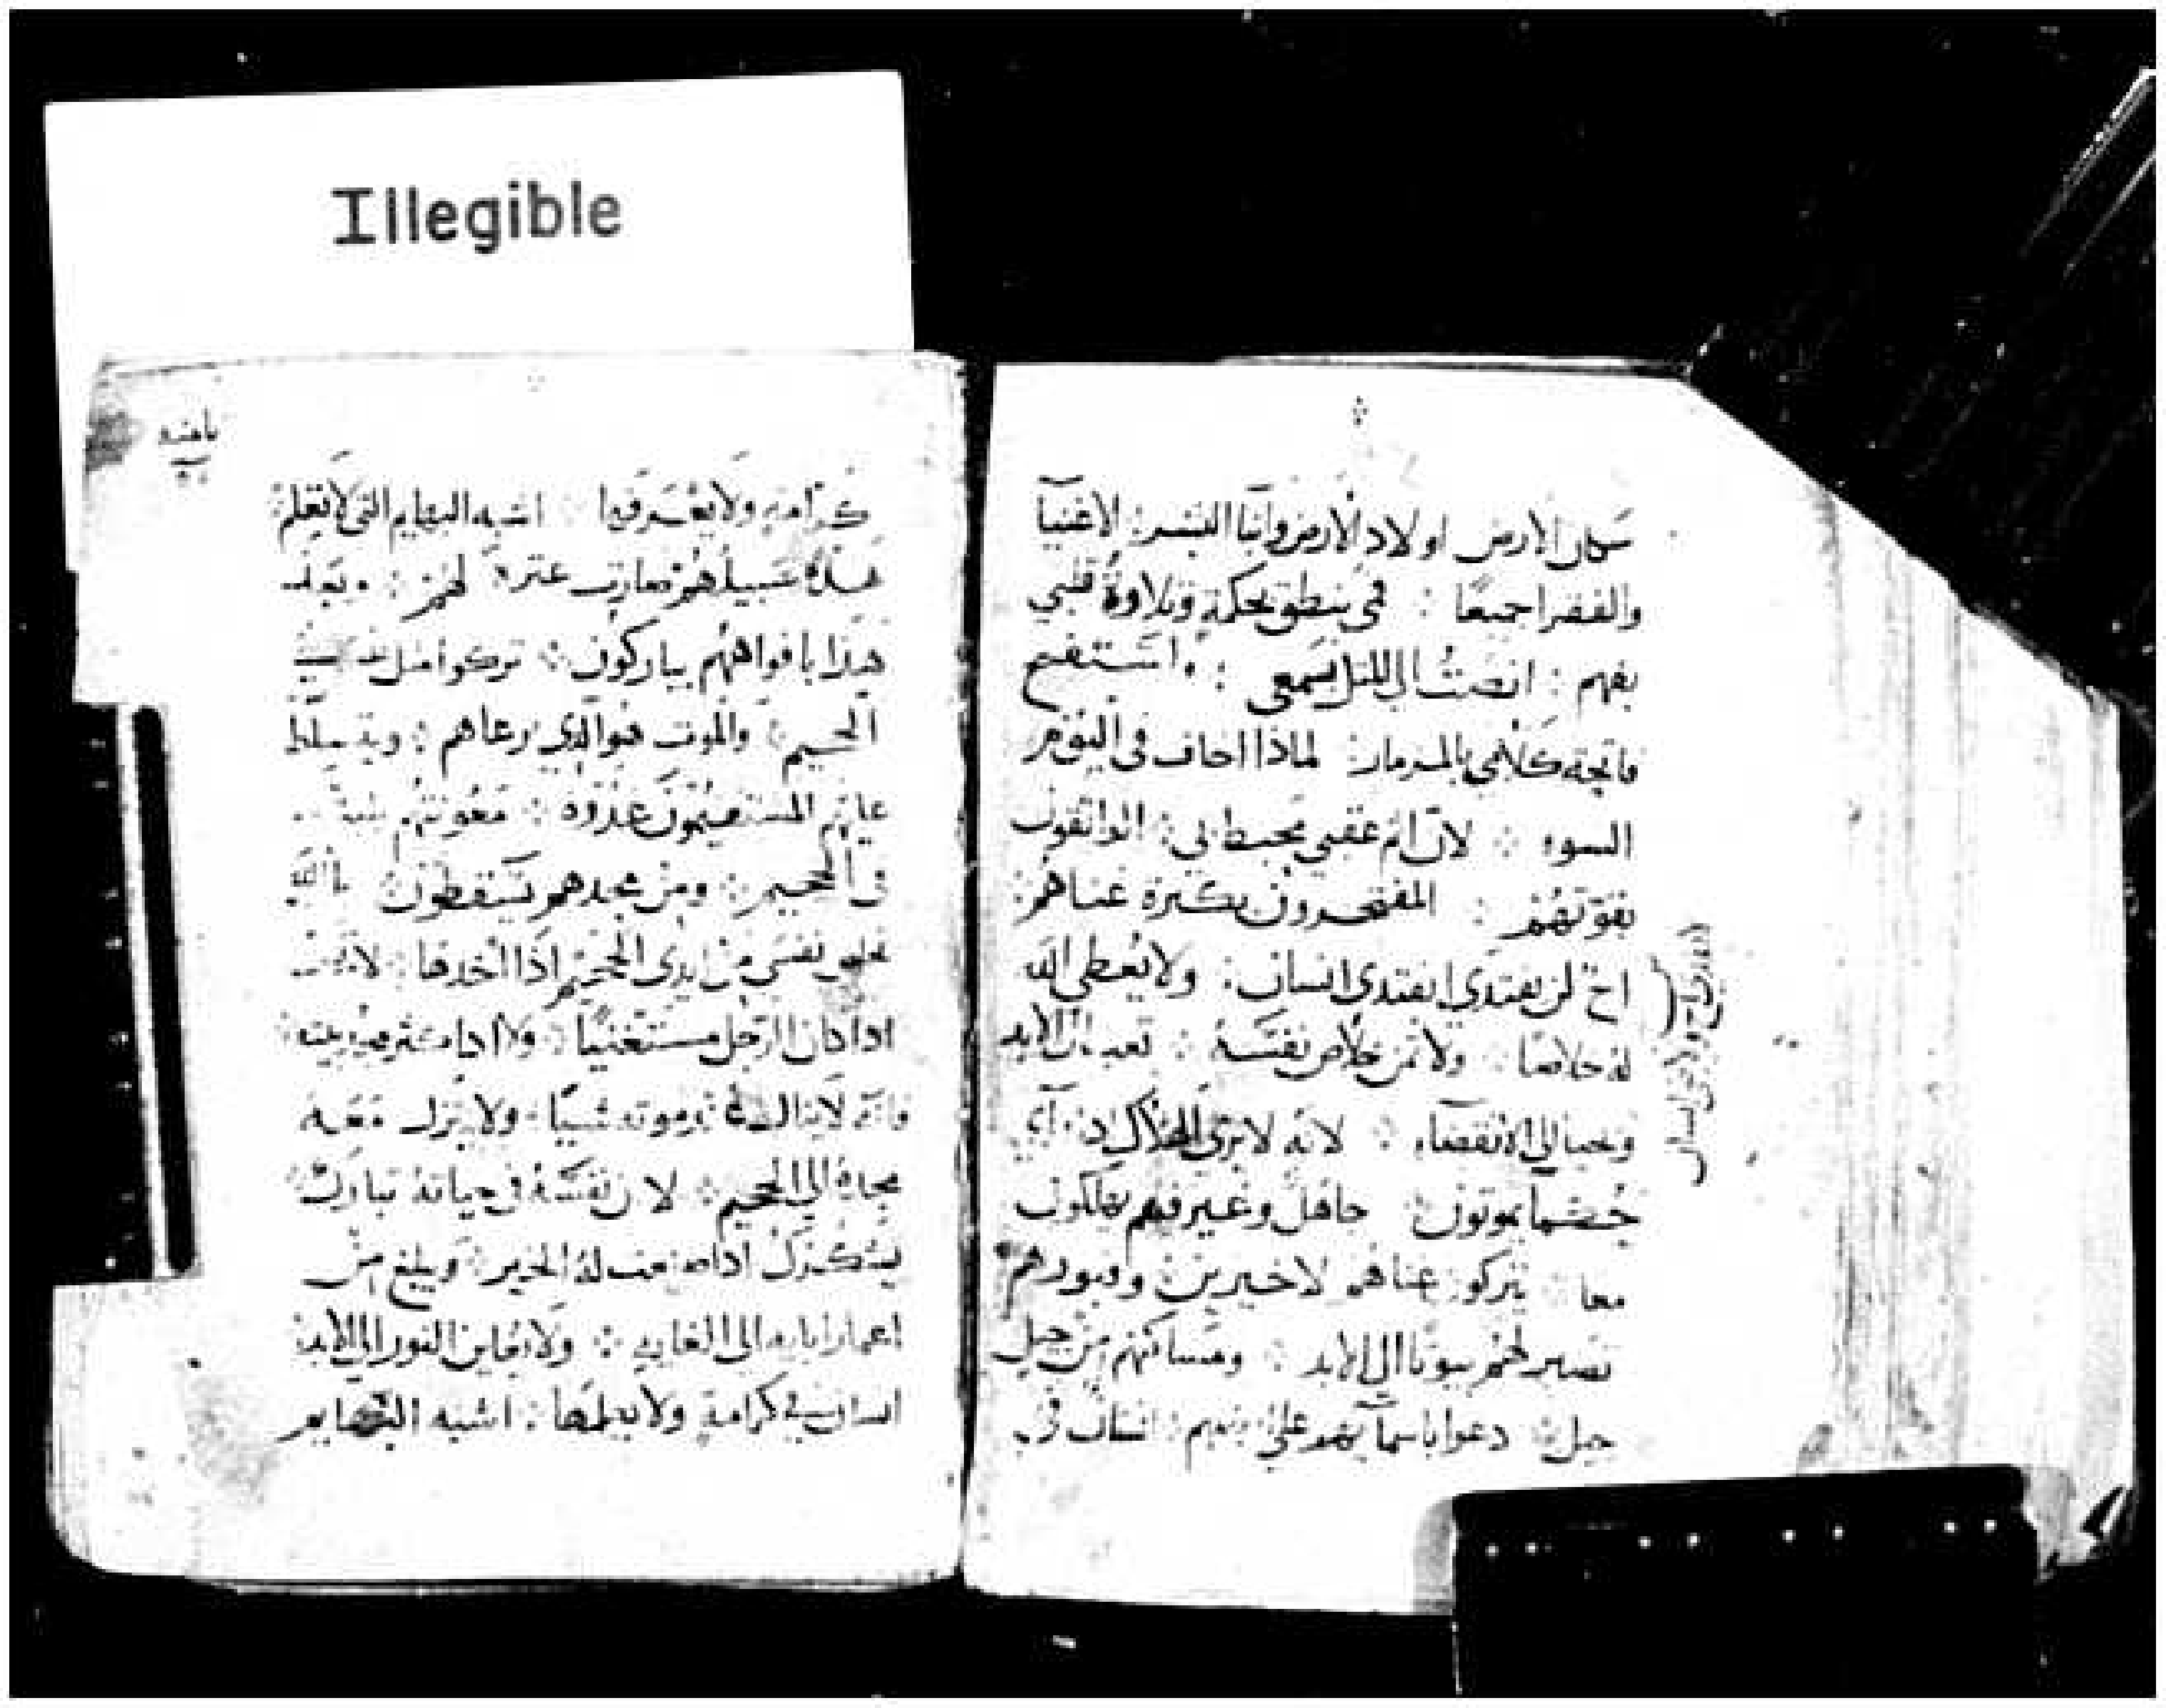 Illegible
سكان الارض اولاد الارض وابنا البشر: الاغنيا
والفقرا جميعًا : فمى ينطق بحكمة وتلاوة قلبي
بفهم : انصت الى المثل بسمعى : واستفتح
فاتحة كلامي بالمزمار: لماذا اخاف فى اليوم
السوء : لان اثم عقبي محيط بي : الواثقون
بقوتهم : المفتخرون بكثرة غناهم:
اخ لن يفتدى ايفتدى انسان: ولا يُعطى الله
له خلاصا : ولا ثمن خلاص نفسه : تعب الى الابد
وحيا الى الانقضاء : لانه لا يرى الهلاك اذ
حُكَمآ يموتون : جاهل وغير فهم يهلكون
معا : يتركون غناهم لاخيرين : وقبورهم
تصير لهم بيوتا الى الابد : ومساكنهم من جيل
جيل : دعوا باسمآيهم على : انسان فى
كرامة ولا يعرفها : اشبه البهايم التى لا تعلم:
هذه سبيلهم صارت عثرة لهم : وبعد
هذا بافواههم يباركون : تركوا مثل
الجحيم : والموت هو الذي رعاهم : ويتسلط
عليهم المستقيمون غدوة : مَعُونتهم
فى الجحيم : ومن مجدهم يسقطون :
نفسى من ايدى الجحيم اذا اخذها : لا
اذا كان الرجل مستغنيًا : ولا اذا كثر مجد بيته:
فانه لا ينال عند موته شيًا : ولا ينزل معه
مجده الى الجحيم : لان نفسه فى حياته تبارك:
يشكرك اذا ما صنعت له الخير : ويبلغ من
اعمار ابايه الى الغاية : ولا يعاين النور الى الابد:
انسان في كرامة ولا يعلمها : اشبه البهايم